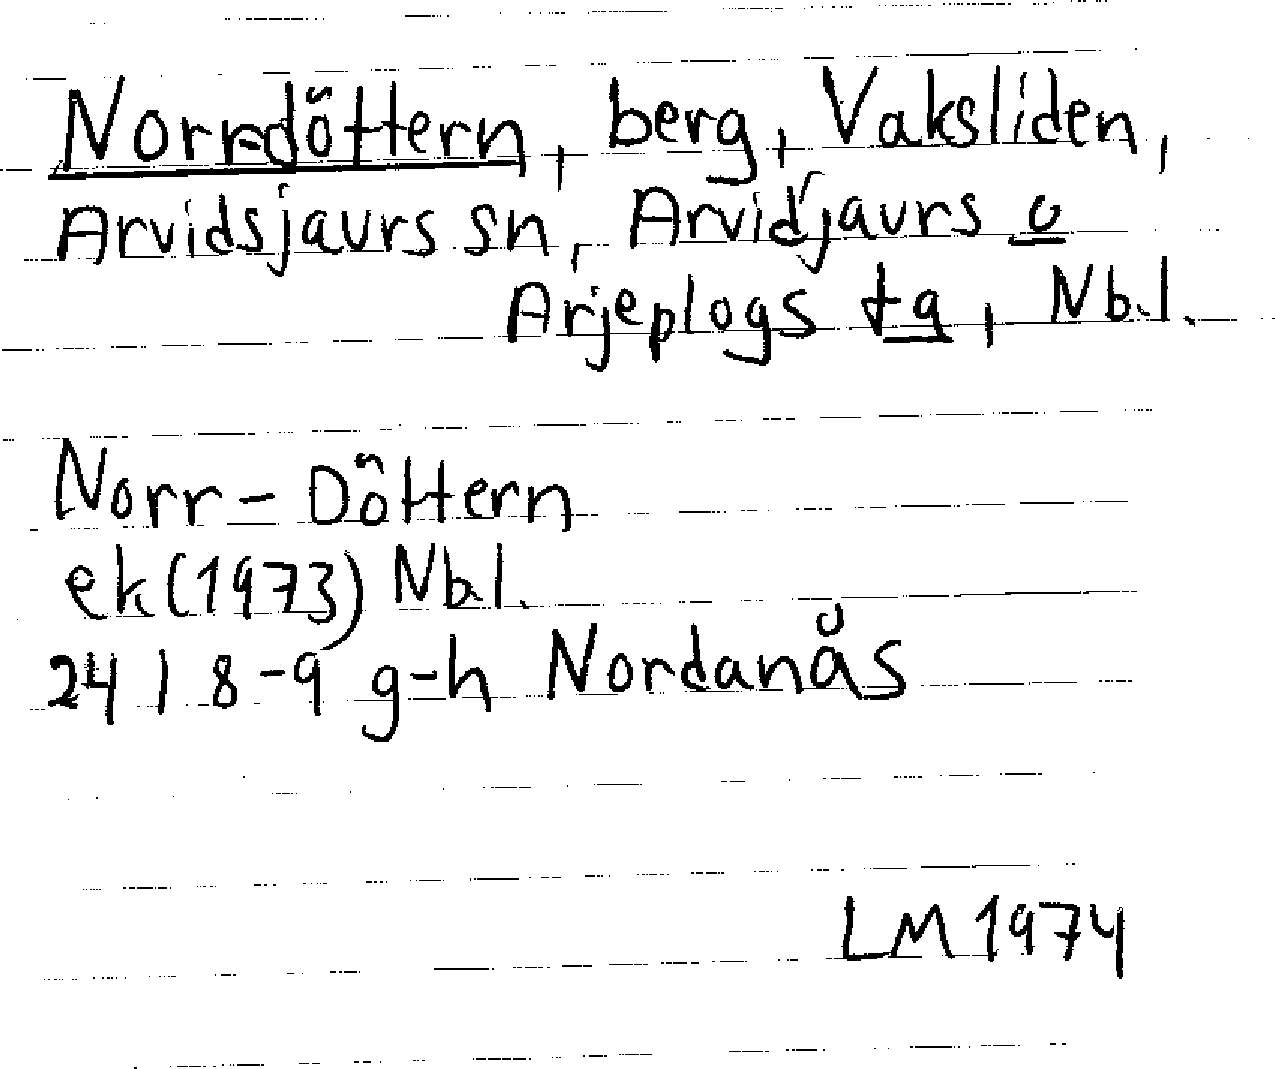 Norr-döttern, berg, Vaksliden,
Arvidsjaurs sn, Arvidjaurs o
Arjeplogs tg, Nb.l.
Norr-Döttern
ek (1973) Nb.l.
24 I 8-9 g-h Nordanås
LM 1974